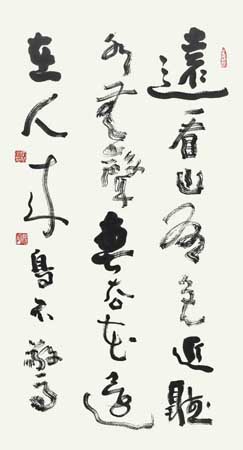 遠看山有色近聽
水無聲春去花還
在人來鳥不驚